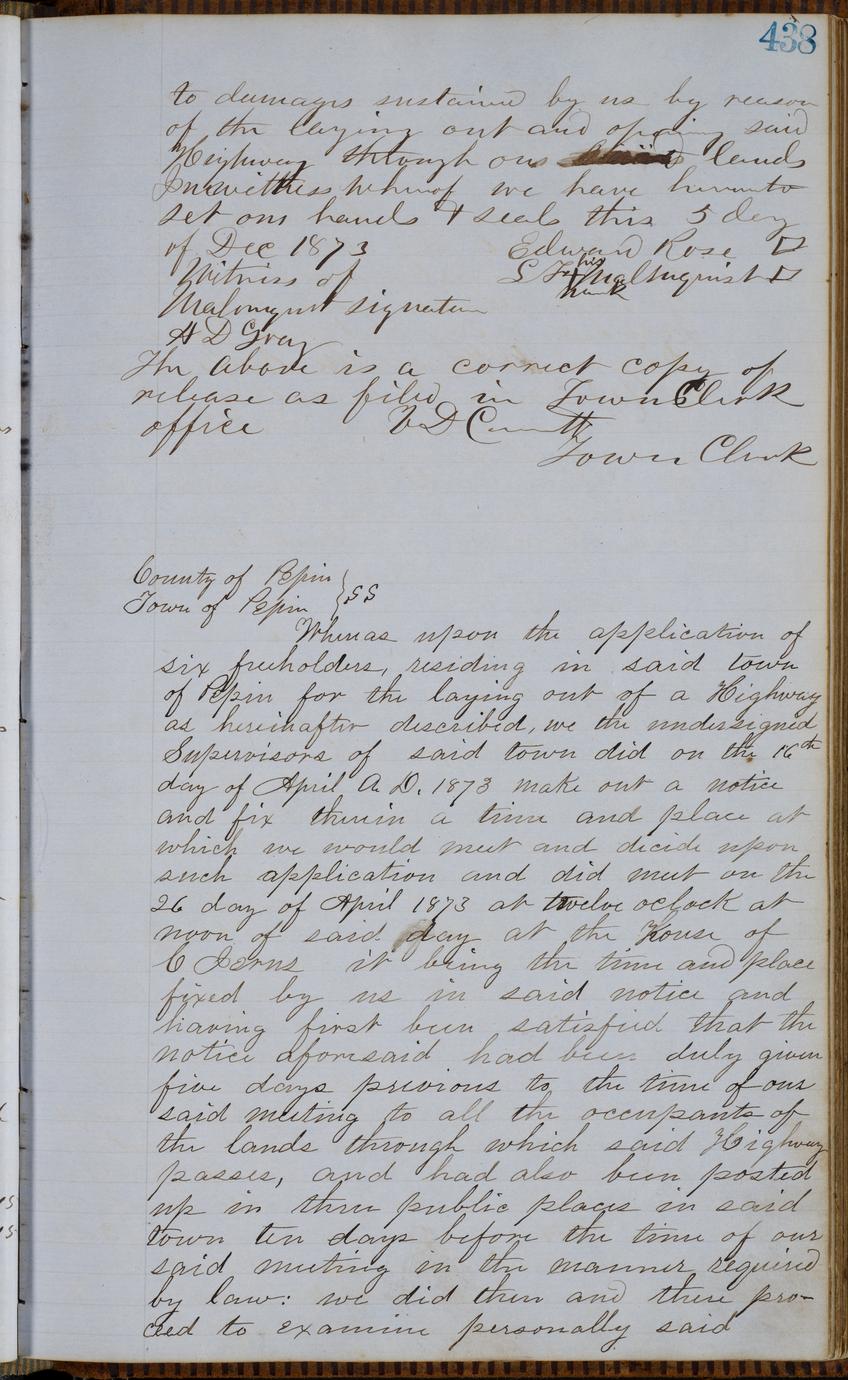 438
to damages sustained by us by reason
of the laying out and opening said
Highway through our lands
In witness whereof we have hereunto
set our hands & seals this 5 day
of Dec 1873 Edward Rose
Witness of his
Malmquist signature mark
A D Gray
The above is a correct copy of
release as filed in Town Clerk
office V D
Town Clerk
County of Pepin
Town of Pepin } SS
Whereas upon the application of
six freeholders, residing in said town
of Pepin for the laying out of a Highway
as hereinafter described, we the undersigned
Supervisors of said town did on the 16th
day of April A. D. 1873 make out a notice
and fix therein a time and place at
which we would meet and decide upon
such application and did meet on the
26 day of April 1873 at twelve oclock at
noon of said day at the House of
C it being the time and place
fixed by us in said notice and
having first been satisfied that the
notice aforesaid had been duly given
five days previous to the time of our
said meeting to all the occupants of
the lands through which said Highway
passes, and had also been posted
up in three public places in said
town ten days before the time of our
said meeting in the manner required
by law: we did then and there pro-
ceed to examine personally said